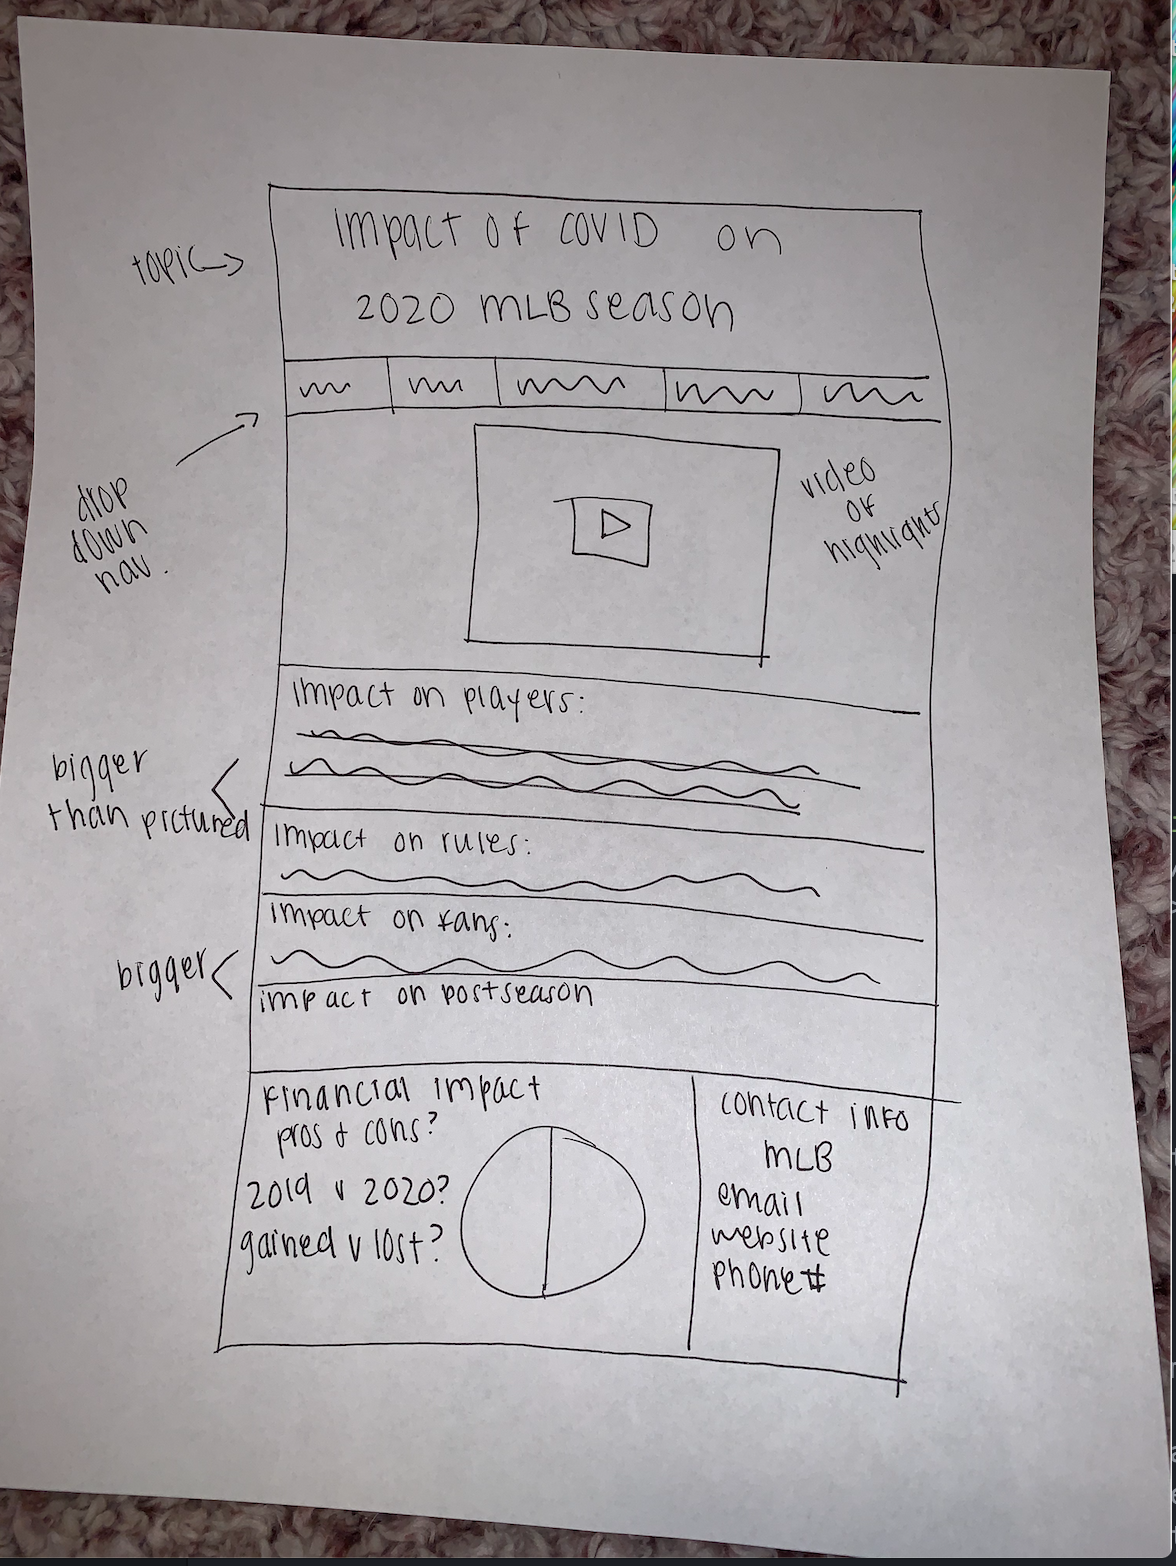 Impact of COVID on
2020 MLB season
topic
drop
down
nav.
video
of
highlights
impact on players:
bigger
than pictured
impact on rules:
impact on fans:
bigger
impact on postseason
Financial impact
pros & cons?
2019 v 2020?
gained v lost?
contact info
MLB
email
website
phone #